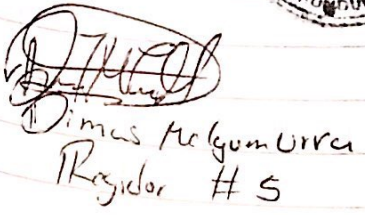 Dimas Melgum Urra
Regidor # 5